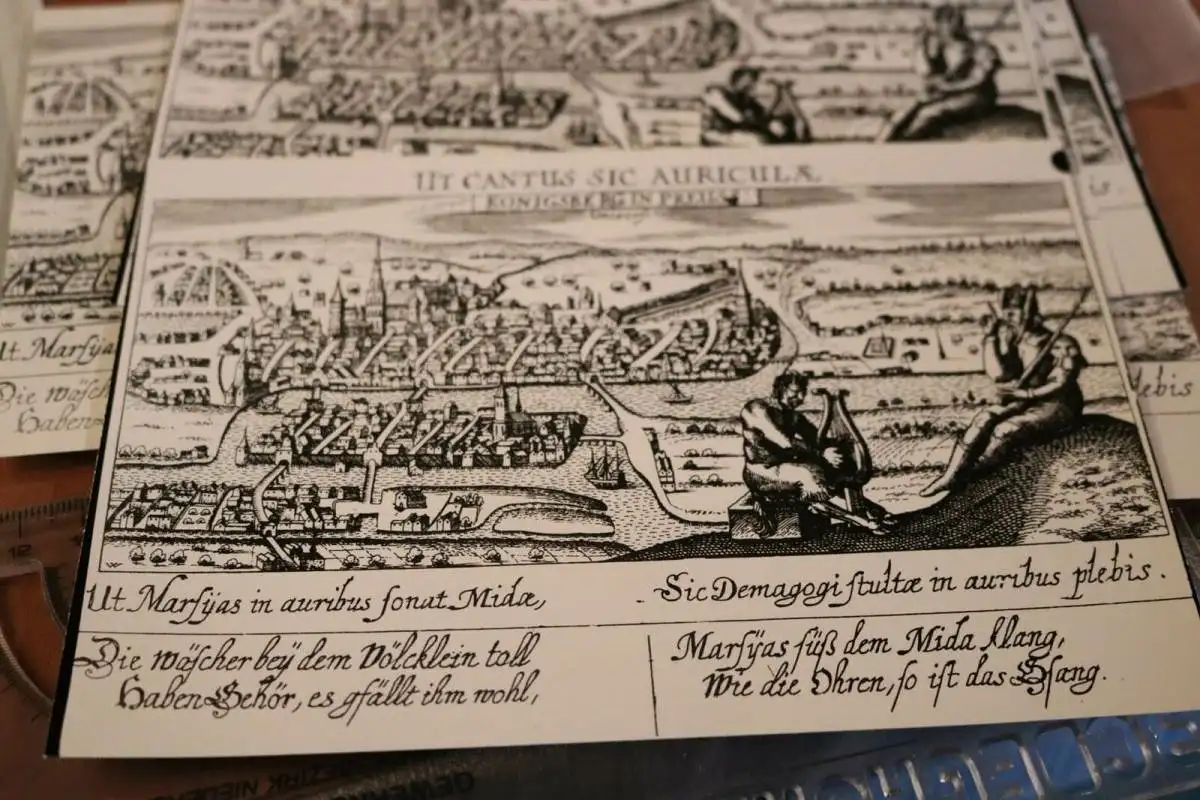 UT CANTUS SIC AURICULÆ
KONIGSBERG IN PREUS
Ut Marſyas in auribus ſonat Midæ,
Sic Demagogi ſtultæ in auribus plebis.
Die wäſcher beÿ dem Völcklein toll
Haben Gehör, es gfällt ihm wohl,
Marſÿas ſüß dem Mida klang,
Wie die Ohren, ſo iſt das Gſang.
Ut Marſya
Die wäſch
Haben
lebis
is.
12